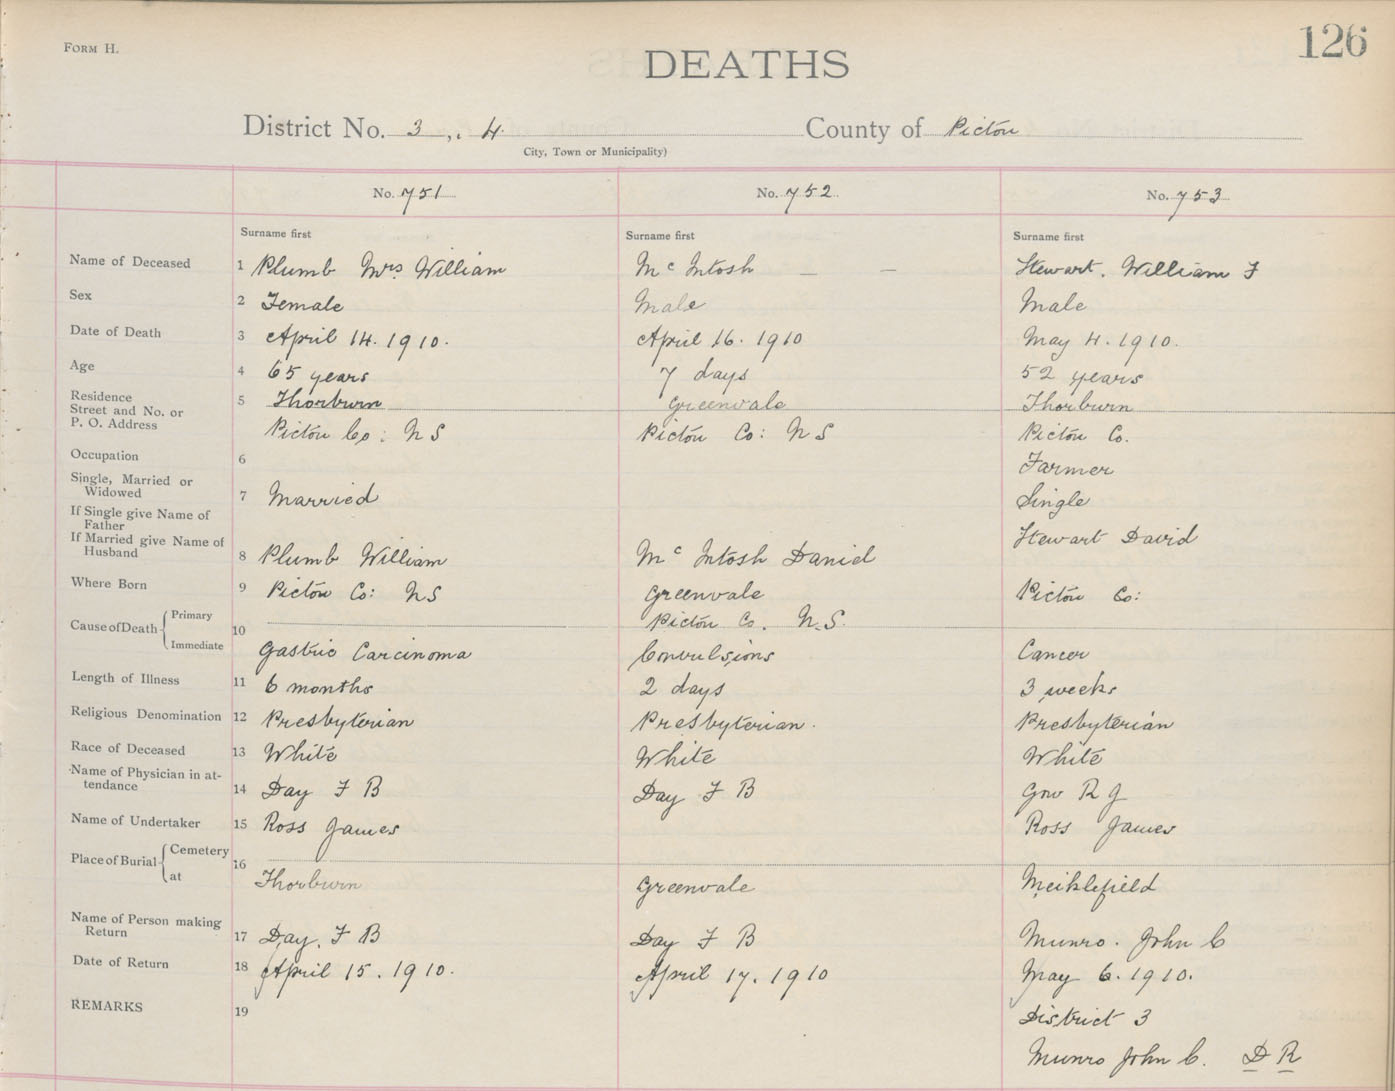 FORM H.
126
DEATHS
District No. 3 ,, 4. County of Pictou
City, Town or Municipality)
No. 751 No. 752 No. 753
Surname first Surname first Surname first
Name of Deceased 1 Plumb Mrs William McIntosh — — Stewart. William F
Sex 2 Female Male Male
Date of Death 3 April 14. 1910. April 16. 1910 May 4. 1910.
Age 4 65 years 7 days 52 years
Residence
Street and No. or 5 Thorburn Greenvale Thorburn
P. O. Address Pictou Co: N S Pictou Co: N S Pictou Co.
Occupation 6 Farmer
Single, Married or
Widowed 7 Married Single
If Single give Name of
Father Stewart David
If Married give Name of
Husband 8 Plumb William McIntosh Daniel
Where Born 9 Pictou Co: NS Greenvale Pictou Co:
Cause of Death { Primary 10 Pictou Co. N.S.
Immediate Gastric Carcinoma Convulsions Cancer
Length of Illness 11 6 months 2 days 3 weeks
Religious Denomination 12 Presbyterian Presbyterian. Presbyterian
Race of Deceased 13 White White White
Name of Physician in at-
tendance 14 Day F B Day F B Gow R J
Name of Undertaker 15 Ross James Ross James
Place of Burial { Cemetery 16
at Thorburn Greenvale Meiklefield
Name of Person making
Return 17 Day. F B Day F B Munro. John C
Date of Return 18 April 15. 1910. April 17. 1910 May 6. 1910.
REMARKS 19 District 3
Munro John C. D R